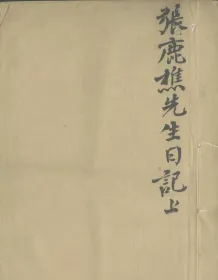 張鹿樵先生日記上